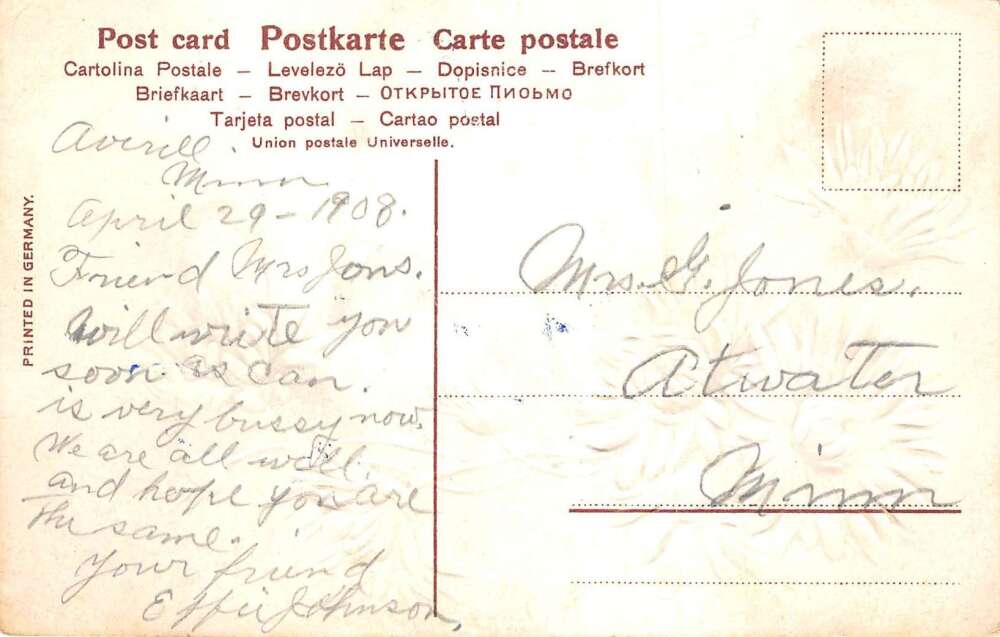 Post card Postkarte Carte postale
Cartolina Postale – Levelezö Lap – Dopisnice – Brefkort
Briefkaart – Brevkort – Открытое Пиоьмо
Tarjeta postal – Cartao postal
Union postale Universelle.
PRINTED IN GERMANY.
Averill.
Minn.
April 29 – 1908.
Friend Mrs Jons.
Will write you
soon as can.
is very bussy now.
We are all well.
and hope you are
the same.
Your friend
Effie Johnson.
Mrs. G. Jones.
Atwater
Minn